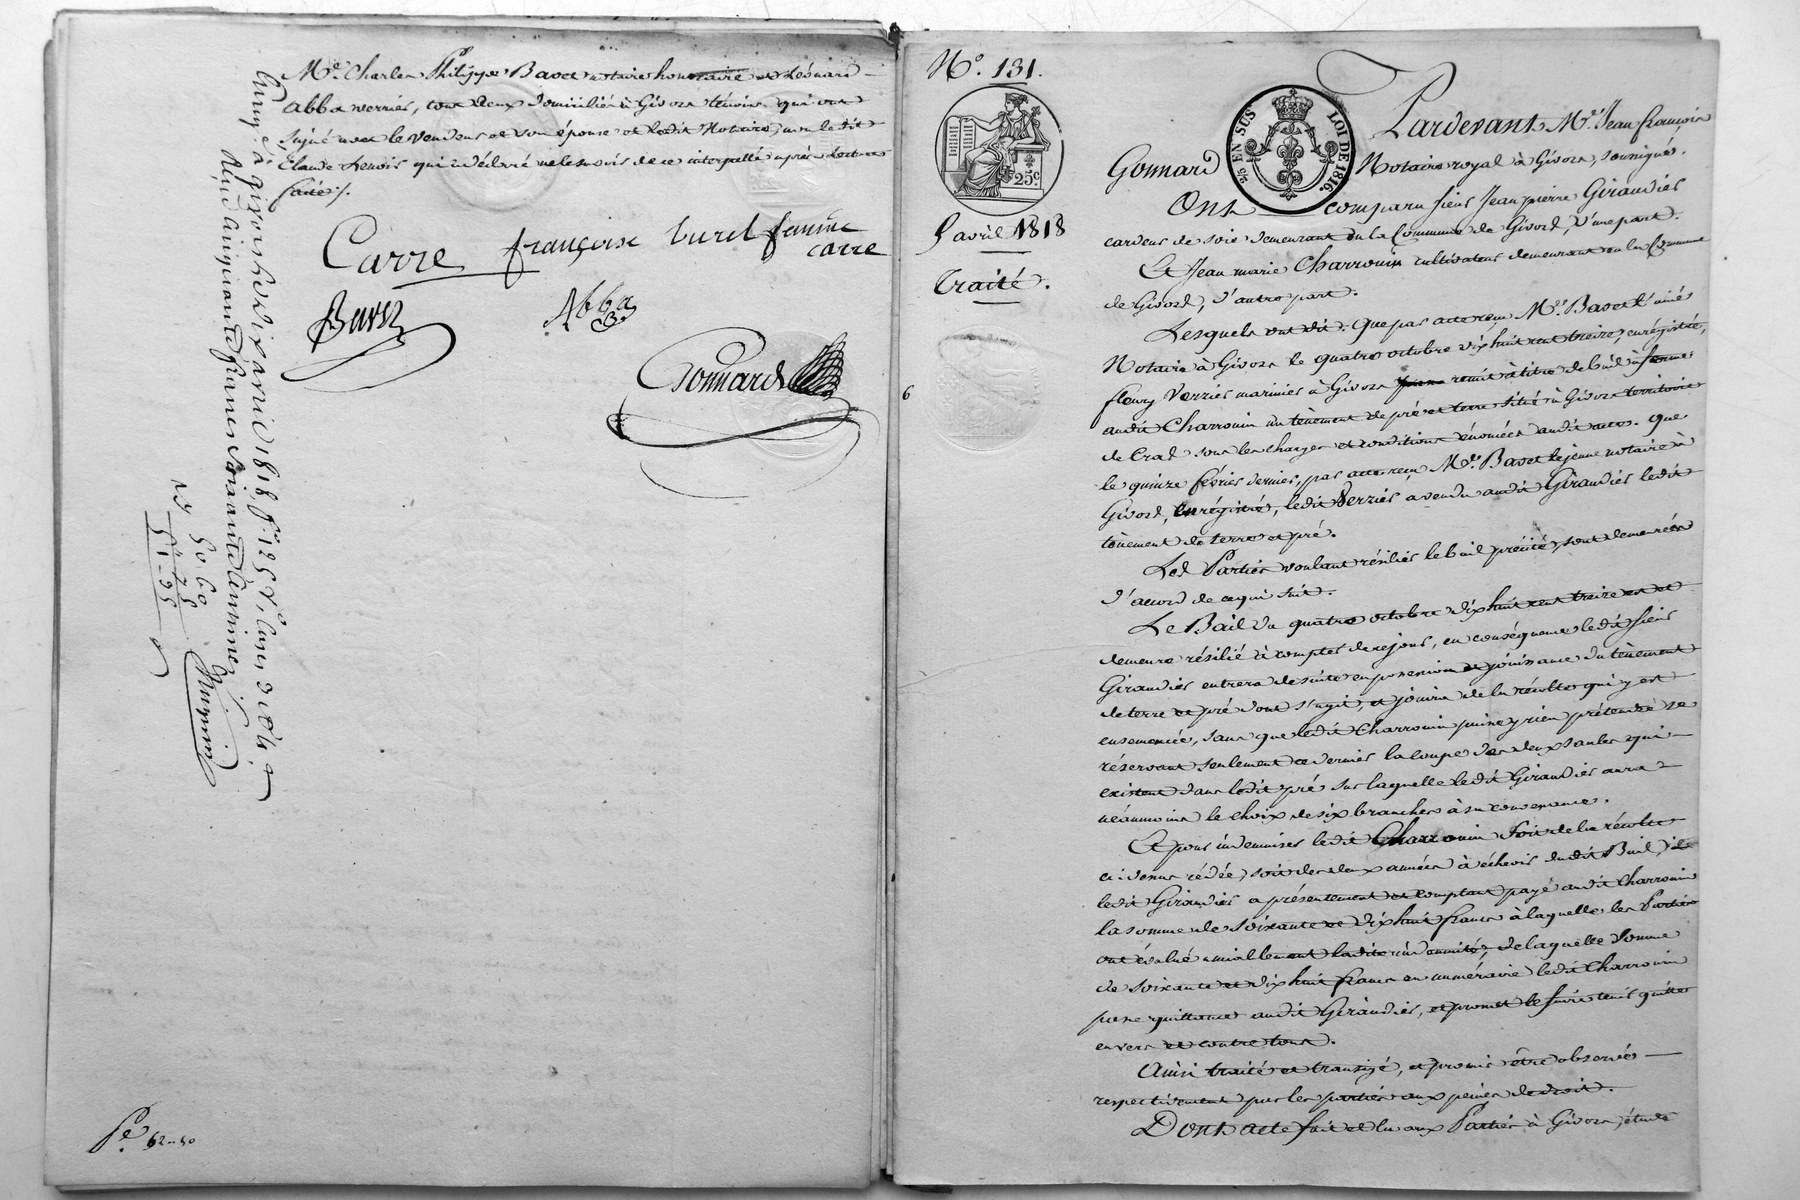 Me. Charles Philippe Bavet notaire honoraire et Léonard
Abba verrier, tous deux domiciliés à Givors témoins qui ont
signé avec le vendeur et son épouse et ledit Notaire, non ledit
Claude Renois qui a déclaré ne le savoir de ce interpellé après lecture
faite./.
Carre françoise burel femme
carre
Bavet Abba
Gonnard
Enrg. à givors le dix avril 1818, f° 125
Reçu cinquante francs soixante centimes
50 60
51-35
Pé. 62-50
N°. 131.
25c
9 avril 1818
Traité.
6
25 EN SUS LOI DE 1816.
Pardevant Me. Jean françois
Gonnard Notaire royal à Givors, soussigné.
Ont comparu sieur Jean pierre Giraudier
cardeur de soie demeurant en la Commune de Givors, d'une part.
Et Jean marie Charrouin cultivateur demeurant en la Commune
de Givors, d'autre part.
Lesquels ont dit: que par acte reçu Me. Bavet l'ainé
Notaire à Givors le quatre octobre dix huit cent treize, enrégistré,
fleury Verrier marinier à Givors remit à titre de bail à ferme
audit Charrouin un tènement de pré et terre situé à Givors territoire
de Cras sous les charges et conditions énoncées audit acte. Que
le quinze février dernier, par acte reçu Me. Bavet lejeune notaire à
Givors, enrégistré, ledit Verrier a vendu audit Giraudier ledit
tènement de terre et pré.
Les Parties voulant résilier le bail précité, sont demeurées
d'accord de ce qui suit.
Le Bail du quatre octobre dix huit cent treize est et
demeure résilié à compter de ce jour, en conséquence ledit sieur
Giraudier entrera de suite en possession et jouissance du tènement
de terre et pré dont s'agit, et jouira de la récolte qui y est
ensemencée, sans que ledit Charrouin puisse y rien prétendre se
réservant seulement ce dernier la coupe des deux saules qui
existent dans ledit pré sur laquelle ledit Giraudier aura
néanmoins le choix de six branches à sa convenance.
Et pour indemniser ledit Charrouin soit de la récolte
ci-dessus cédée, soit des deux années à échoir dudit Bail,
ledit Giraudier a présentement et comptant payé audit Charrouin
la somme de soixante et dix huit francs à laquelle les Parties
ont évalué amiablement ladite indemnité, de laquelle somme
de soixante et dix huit francs en numéraire ledit Charrouin
passe quittance audit Giraudier, et promet le faire tenir quitte
envers et contre tous.
Ainsi traité et transigé, et promis être observé
respectivement par les parties aux peines de droit.
Dont acte fait et lu aux Parties à Givors, étude